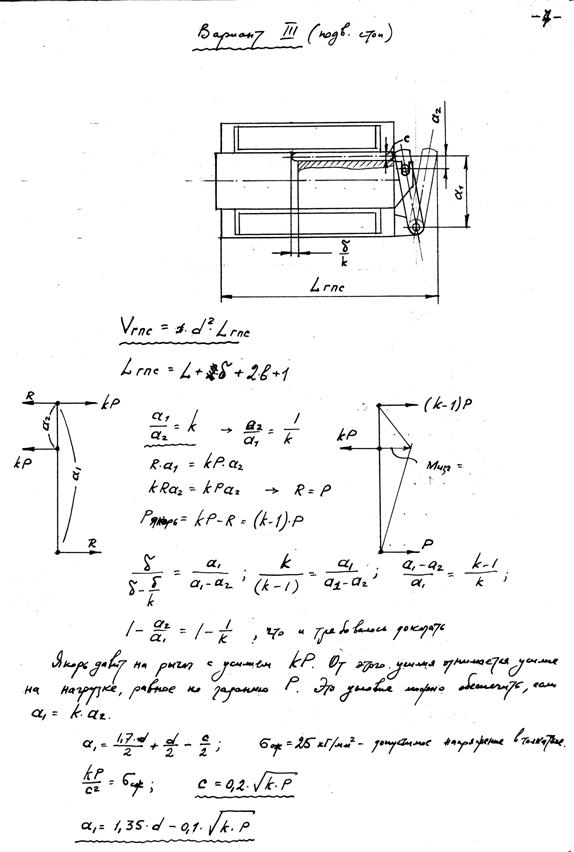 -7-
Вариант III (подв. стоп)
a₂
c
a₁
δ/k
Lгпс
Vгпс = 1·d²·Lгпс
Lгпс = L + δ + 2·b + 1
R kP
a₂
kP
a₁
R
a₁/a₂ = k → a₂/a₁ = 1/k
R·a₁ = kP·a₂
kRa₂ = kPa₂ → R = P
Pякорь = kP - R = (k-1)·P
(k-1)P
kP
Mизг =
P
δ/(δ - δ/k) = a₁/(a₁-a₂) ; k/(k-1) = a₁/(a₁-a₂) ; (a₁-a₂)/a₁ = (k-1)/k ;
1 - a₂/a₁ = 1 - 1/k , что и требовалось доказать
Якорь давит на рычаг с усилием kP. От этого усилия отнимается усилие
на нагрузке, равное по заданию P. Это условие можно обеспечить, если
a₁ = k·a₂.
a₁ = 1,7·d/2 + d/2 - c/2 ; σсж = 25 кг/мм² - допустимое напряжение в толкателе.
kP/c² = σсж ; c = 0,2·√k·P
a₁ = 1,35·d - 0,1·√k·P